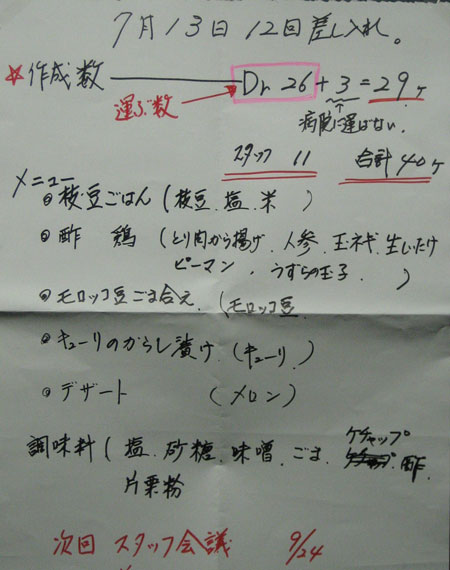 7月13日 12回差し入れ。
☆作成数 Dr 26+3=29ヶ
運ぶ数
病院に運ばない.
スタッフ 11 合計40ヶ
メニュー
◎枝豆ごはん(枝豆.塩.米)
◎酢鶏(とり肉から揚げ.人参.玉ネギ.生しいたけ
ピーマン.うずらの玉子.)
◎モロッコ豆ごま合え.(モロッコ豆
◎キューリのからし漬け.(キューリ.)
◎デザート(メロン)
ケチャップ
調味料(塩.砂糖.味噌.ごま.酢.
片栗粉
次回 スタッフ会議 9/24